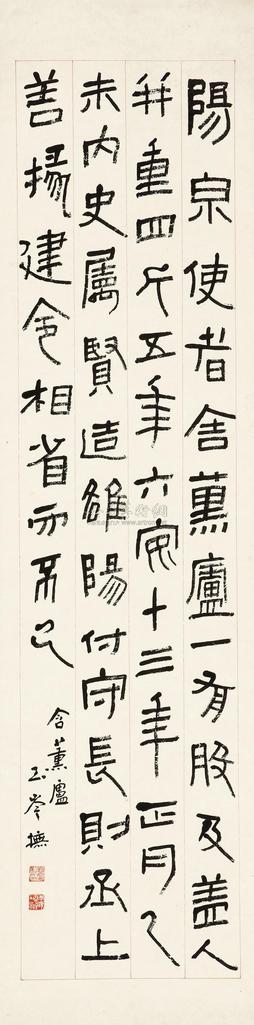 陽泉使者舍熏盧一有般及盖人
并重四斤五年六安十三年正月乙
未內史屬賢造雒陽付守長則丞上
善掾建令相省而不己
含薰廬
玉岑撫